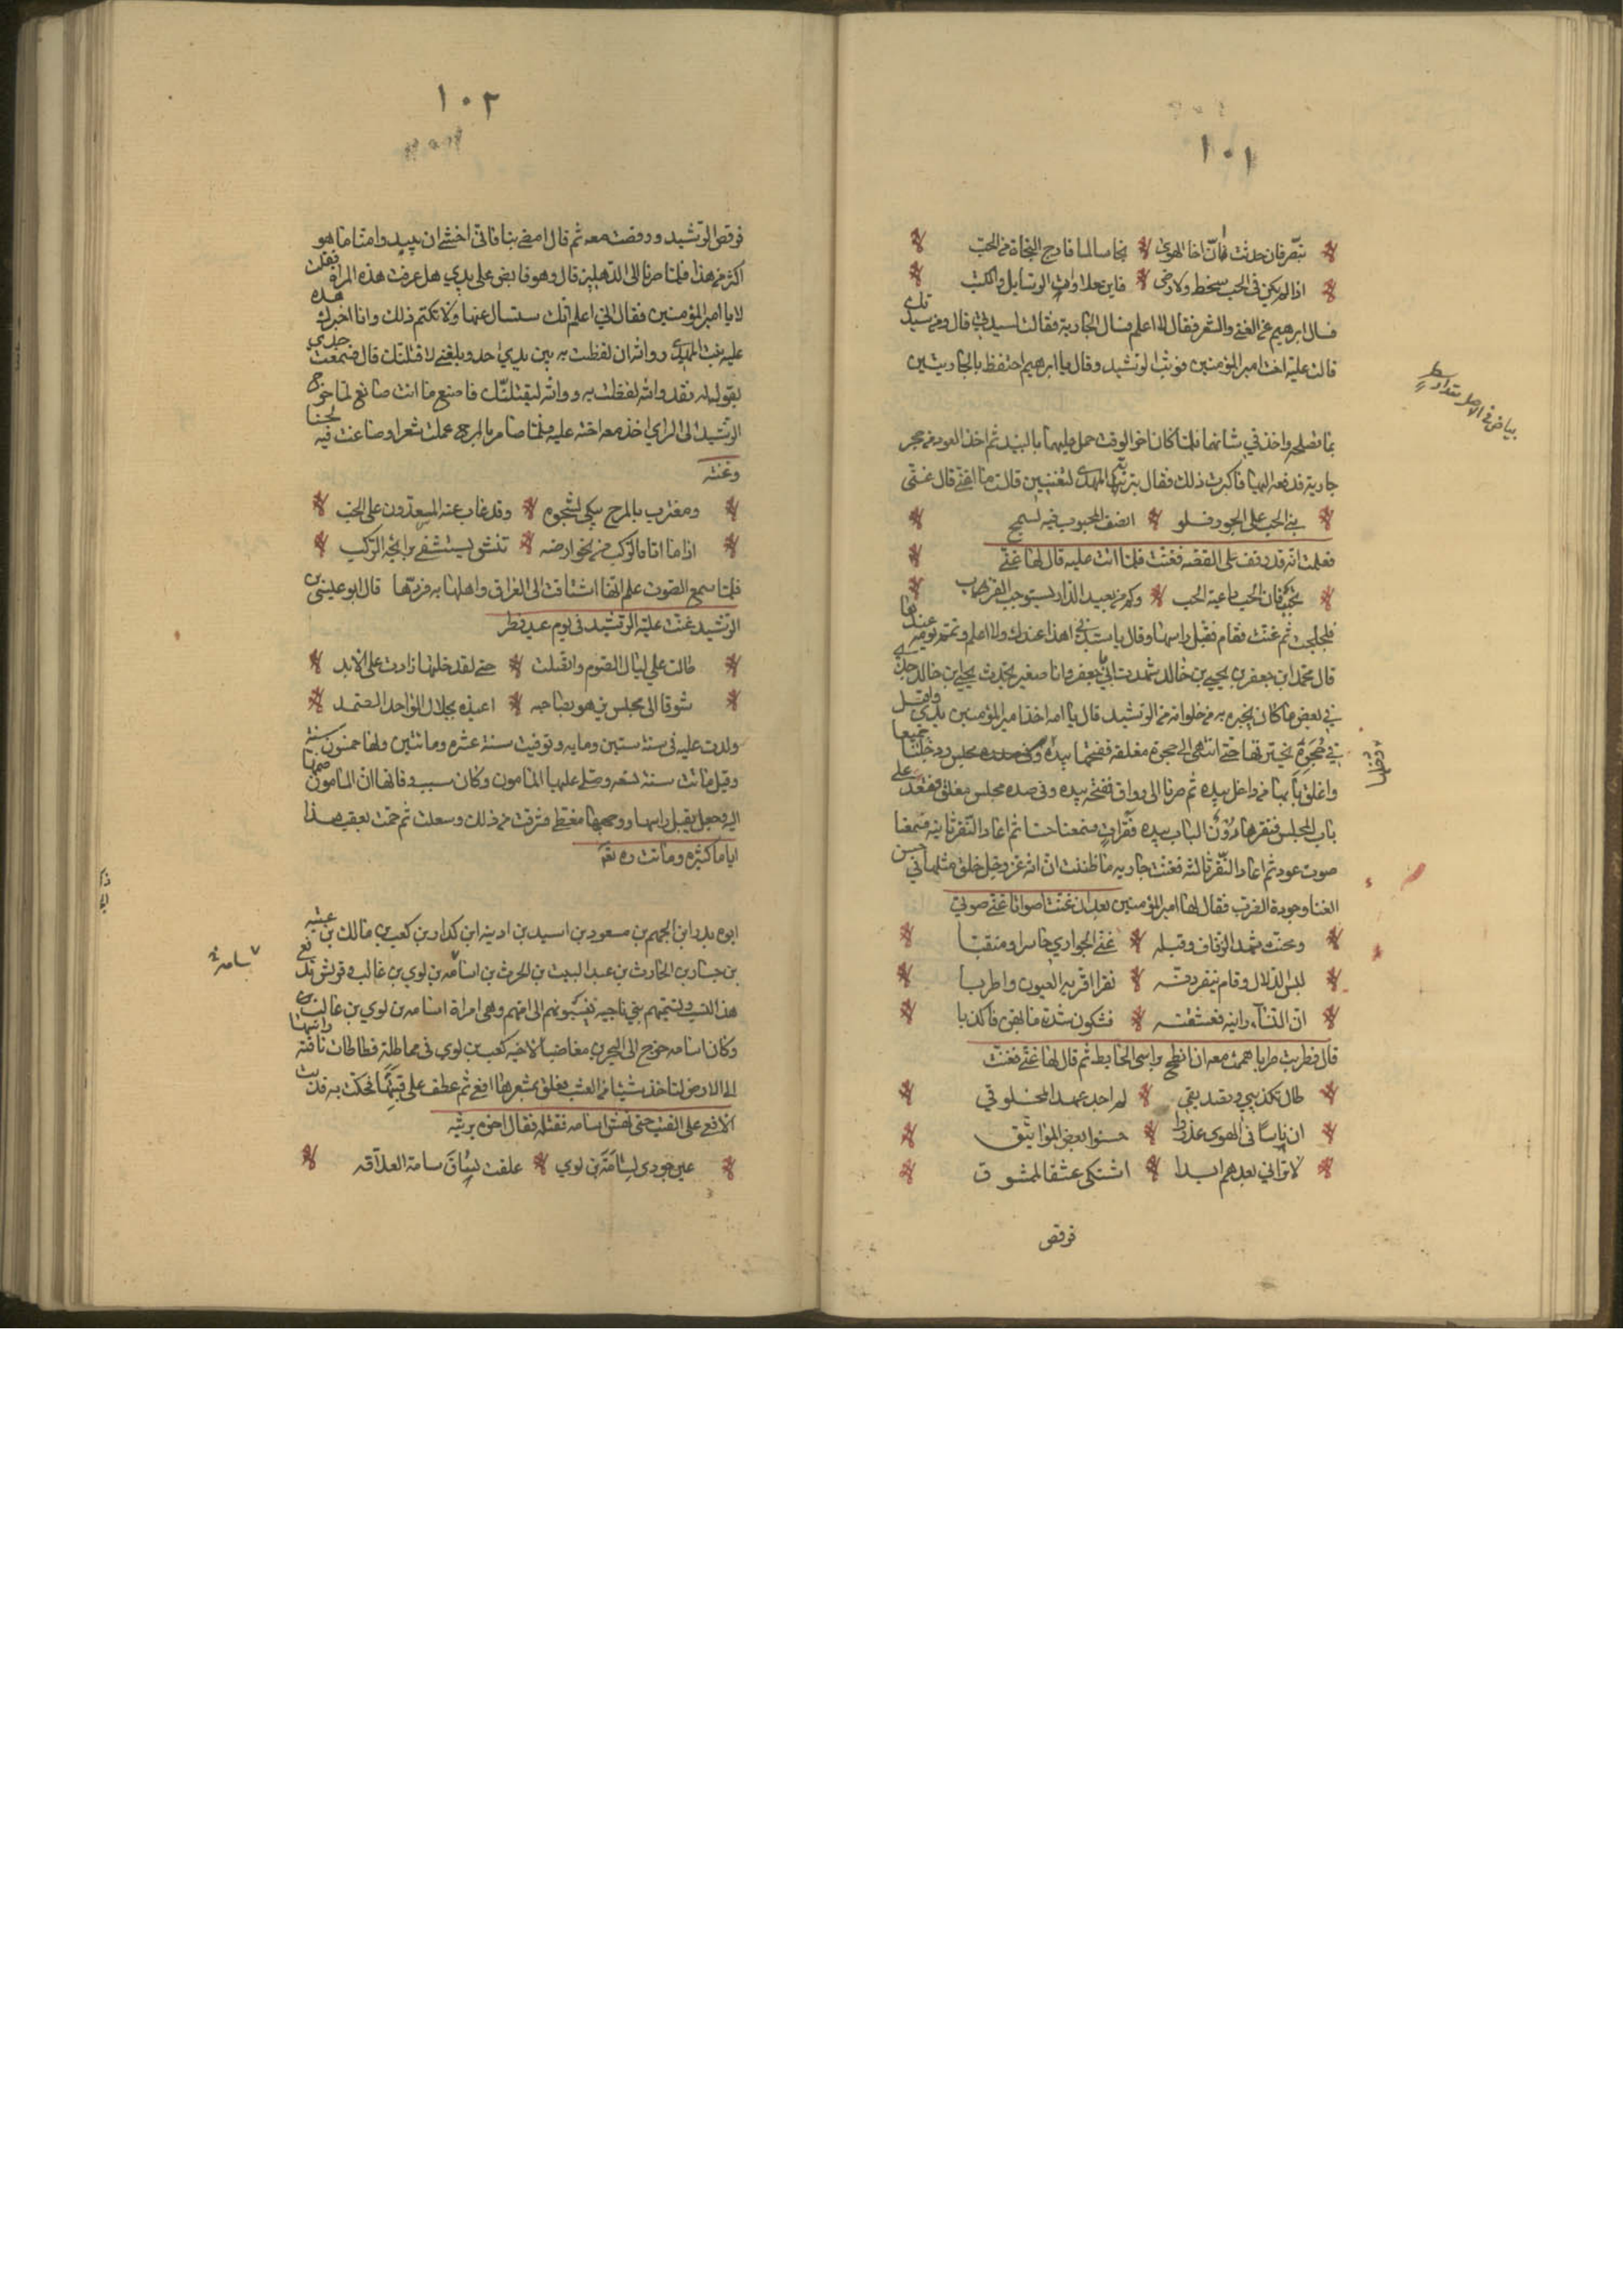 ١٠١
تبصر فان حدثت فان اخا الهوى نجا سالما فارج النجاة من الحب
اذا لم يكن في الحب سخط ولا رضى فاين حلاوات الرسايل والكتب
فسال ابرهيم عن الغنى والشعر فقال لا اعلم فسال الجارية فقالت لسيدتي قال ومن سيدتك
قالت علية اخت امير المؤمنين فوثب الرشيد وقال يا ابرهيم احتفظ بالجاريتين
بياض في الاصل مقدار سطر
بما تصلحه واخذ في شانها فلما كان اخر الوقت حمل عليها بالنبيذ ثم اخذ العود من حجر
جارية فدفعه اليها فاكبرت ذلك فقال بتربة المهدي لتغنين قالت ما اغني قال غني
بني الحب على الجور فلو انصف المحبوب فيه لسمج
فعلمت انه قد وقف على القصه فغنت فلما اتت عليه قال لها غني
تحبب فان الحب داعية الحب وكم من بعيد الدار يستوجب القرب
فلجلجت ثم غنت فقام فقبل راسها وقال يا ستي اهذا عندك ولا اعلم وتمم يومه عندها
قال محمد ابن جعفر بن يحيى بن خالد شهدت ابي جعفر وانا صغير يحدث يحيى بن خالد جدي
في بعض ما كان يخبره به من خلواته من الرشيد قال يا ابه اخذ امير المؤمنين بيدي واقبل
في حجرة يخترقها حتى انتهى الى حجرة مغلقه ففتحها بيده ودخلنا جميعا
واغلق بابها من داخل بيده ثم صرنا الى رواق ففتحه بيده وفي صدره مجلس مغلق فقعد على
باب المجلس فنقر الباب بيده نقرات فسمعنا حسا ثم اعاد النقر ثانيه فسمعنا
صوت عود ثم اعاد النقر ثالثه فغنت جاريه ما ظننت ان الله عز وجل خلق مثلها في حسن
الغنا وجودة الضرب فقال لها امير المؤمنين بعد ان غنت اصواتا غني صوتي
ومخنث شهد الزفاف وقبله غنى الجواري حاسرا ومنقبا
لبس الدلال وقام ينقر دفه نقرا اقر به العيون واطربا
ان النساء راينه فعشقنه فشكون شدة ما بهن فاكذبا
قال فطربت طربا هممت معه ان انطح براسي الحايط ثم قال لها غني فغنت
طال تكذيبي وتصديقي لم اجد عهدا لمخلوقي
ان ناسا في الهوى غدروا حسنوا نقض المواثيق
لا تراني بعدهم ابدا اشتكي عشقا لمعشوق
فرقص
١٠٢
فرقص الرشيد ورقصت معه ثم قال امض بنا فاني اخشى ان يبدو منا ما هو
اكثر من هذا فلما صرنا الى الدهليز قال وهو قابض على يدي هل عرفت هذه المراة فقلت
لا يا امير المؤمنين فقال اني اعلم انك ستسال عنها ولا تكتم ذلك وانا اخبرك هذه
علية بنت المهدي ووالله ان لفظت به بين يدي احد وبلغني لاقتلنك قال فسمعت جدي
يقول له فقد والله لفظت به ووالله ليقتلنك فاصنع ما انت صانع لما خرج
الرشيد الى الري اخذ معه اخته علية فلما صار بالمرج عملت شعرا وصاغت فيه لحنا
وغنته
ومغترب بالمرج يبكي لشجوه وقد غاب عنه المسعدون على الحب
اذا ما اتاه الركب من نحو ارضه تنشق يستشفي برائحة الركب
فلما سمع الصوت علم انها اشتاقت الى العراق واهلها به فردها قال ابو عيسى بن
الرشيد غنت علية الرشيد في يوم عيد فطر
طالت علي ليالي الصوم واتصلت حتى لقد خلتها زادت على الابد
شوقا الى مجلس يزهو بصاحبه اعيذه بجلال الواحد الصمد
ولدت علية في سنة ستين ومايه وتوفيت سنة عشره ومائتين ولها خمسون سنة
وقيل ماتت سنة تسعه وصلى عليها المامون وكان سبب وفاتها ان المامون ضمها
اليه وجعل يقبل راسها ووجهها مغطى فشرقت من ذلك وسعلت ثم حمت بعقب هذا
اياما كثيره وماتت
ابوه بدر ابن الجهم بن مسعود بن اسيد بن اذينه ابن كدار بن كعب بن مالك بن عتبه
بن جسار بن الحارث بن عبد البيت بن الحرث بن اسامه بن لوي بن غالب وقريش تدفع
سامه
هذا النسب وتسميهم بني ناجيه ينسبونهم الى امهم وهي امراة اسامه بن لوي بن غالب
وكان اسامه خرج الى البحرين مغاضبا لاخيه كعب بن لوي في مماظة فطاطات ناقته راسها
الى الارض لتاخذ شيئا من العشب فعلق بمشفرها افعى ثم عطف على قتبها فحكت به فدب
الافعى على القتب حتى نهش اسامه فقتله فقال اخوه يرثيه
عين جودي لسامة بن لوي علقت بساق سامة العلاقه